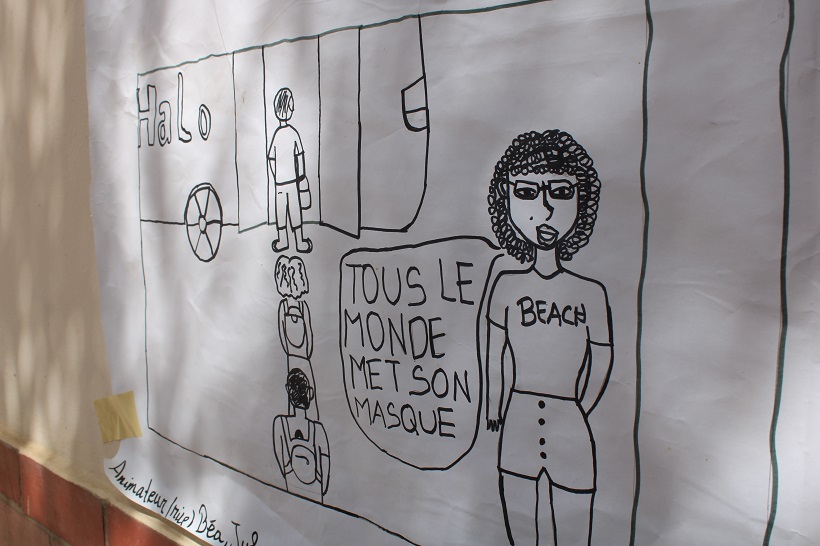 Halo
TOUS LE
MONDE
MET SON
MASQUE
BEACH
Animateur(rice) Béa,